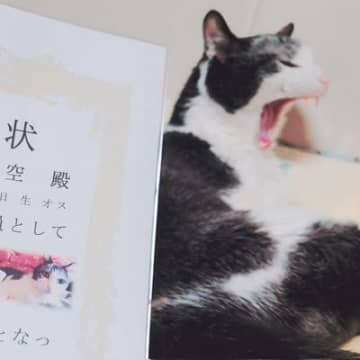 状
空 殿
日 生 オス
員として
となっ